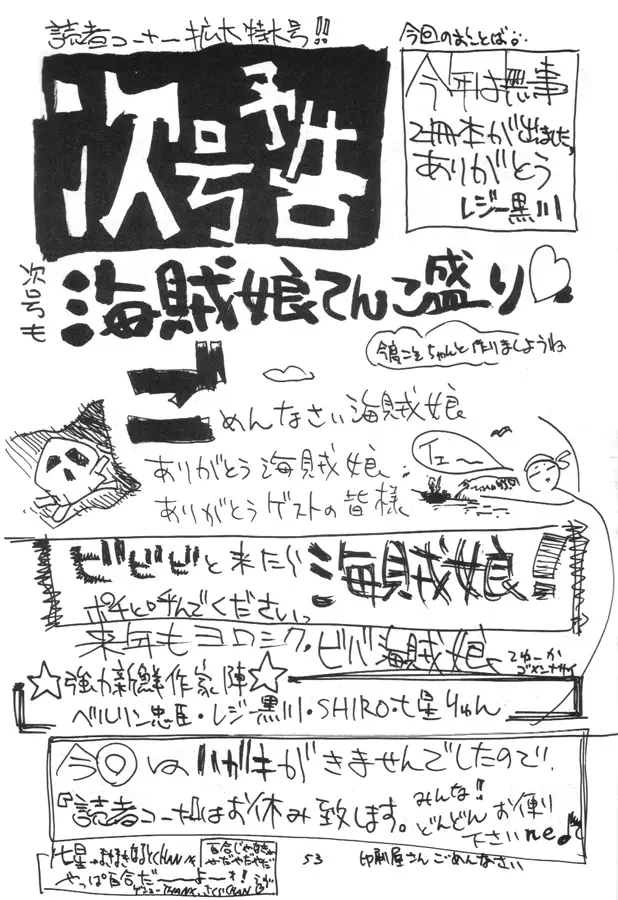 読者コーナー拡大特大号!!
今回のまことば
今年は無事
2冊本が出ました。
ありがとう
レジー黒川
次号予告
次号も
海賊娘てんこ盛り♡
今度こそちゃんと作りましょうね
ごめんなさい海賊娘
ありがとう海賊娘
ありがとうゲストの皆様
イエー
ビビビと来たら海賊娘!
ポチと呼んでください。
来年もヨロシク・ビバ海賊娘
てゆーか
ゴメンナサイ
☆強力新鮮作家陣☆
ベルリン忠臣・レジー黒川・SHIRO・七星りゅん
今回はハガキがきませんでしたので、
『読者コーナー』はお休み致します。
みんな!!
どんどんお便り
下さいne♪
やっぱ百合だーーよーォ!
53
印刷屋さんごめんなさい